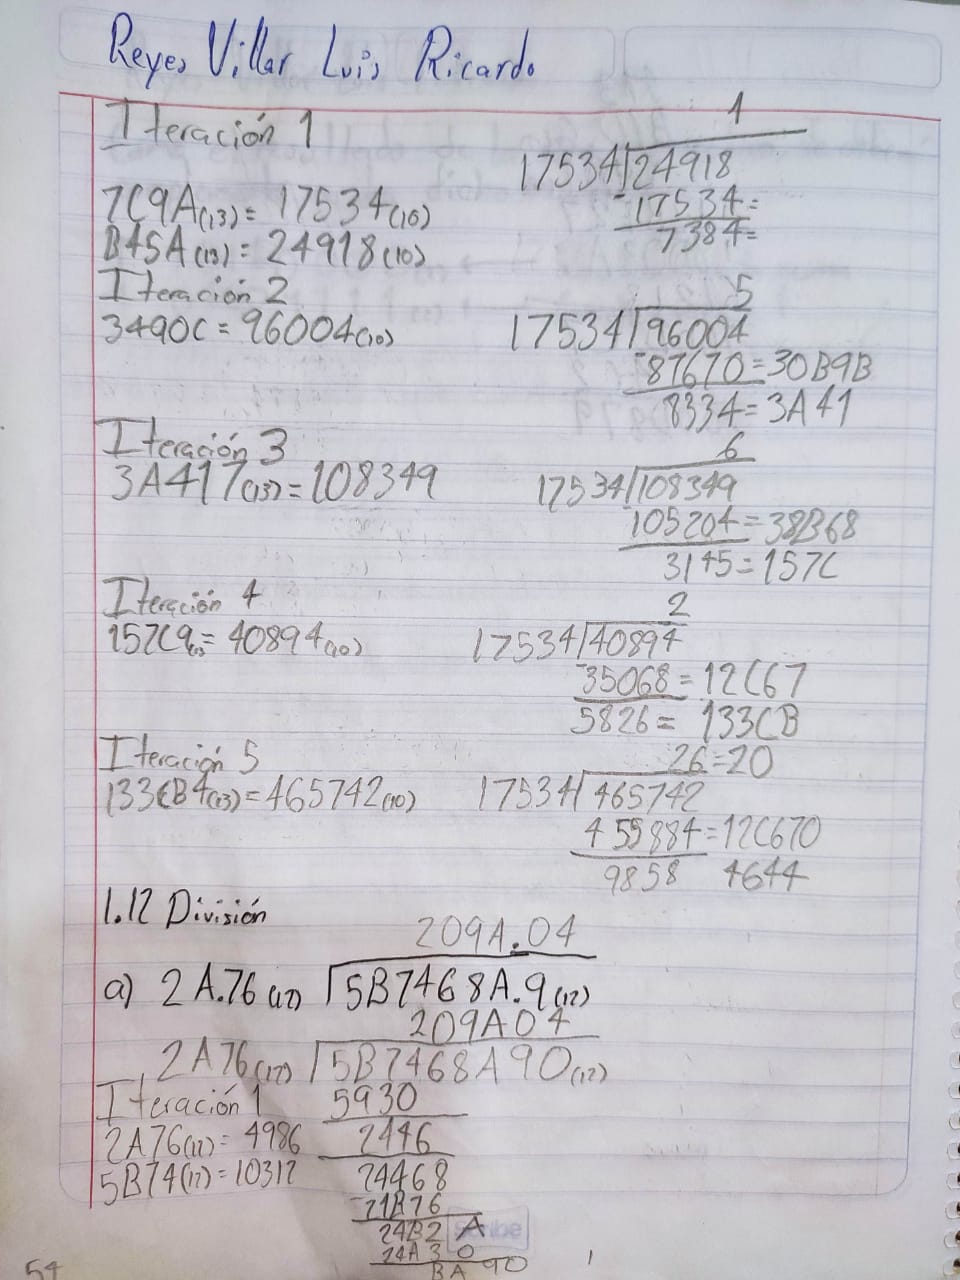 Reyes Villar Luis Ricardo
Iteración 1
1
17534 24918
7C9A(13)= 17534(10)
-17534=
7384=
B45A(13)= 24918(10)
Iteración 2
5
3490C = 96004(10)
17534 96004
-87670=30B9B
8334=3A41
Iteración 3
6
3A417(13)=108349
17534 108349
105204=38B68
3145=157C
Iteración 4
2
157C9(13)= 40894(10)
17534 40894
-35068=12C67
5826= 133CB
Iteración 5
26=20
133CB4(13)=465742(10)
17534 465742
455884=12C670
9858 4644
1.12 División
209A.04
a) 2A.76(12) 5B7468A.9(12)
209A04
2A76(12) 5B7468A90(12)
Iteración 1
5930
2A76(12)= 4986
2446
5B74(12)=10312
24468
-21B76
24B2A
24A30
BA90
Scribe
54